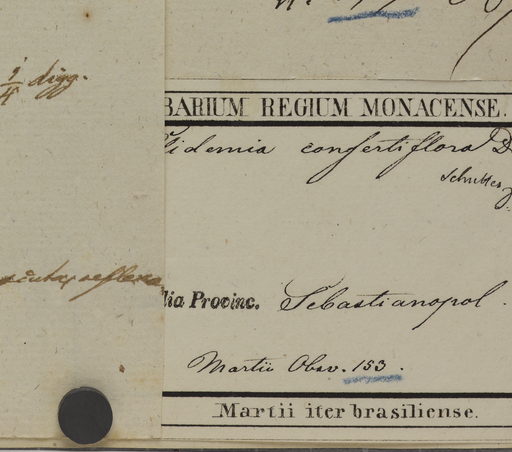 1/4 digg.
BARIUM REGIUM MONACENSE.
lidemia confertiflora D
Schultes
reflexa
lia Provinc. Sebastianopol.
Martii Obsv. 153.
Martii iter brasiliense.